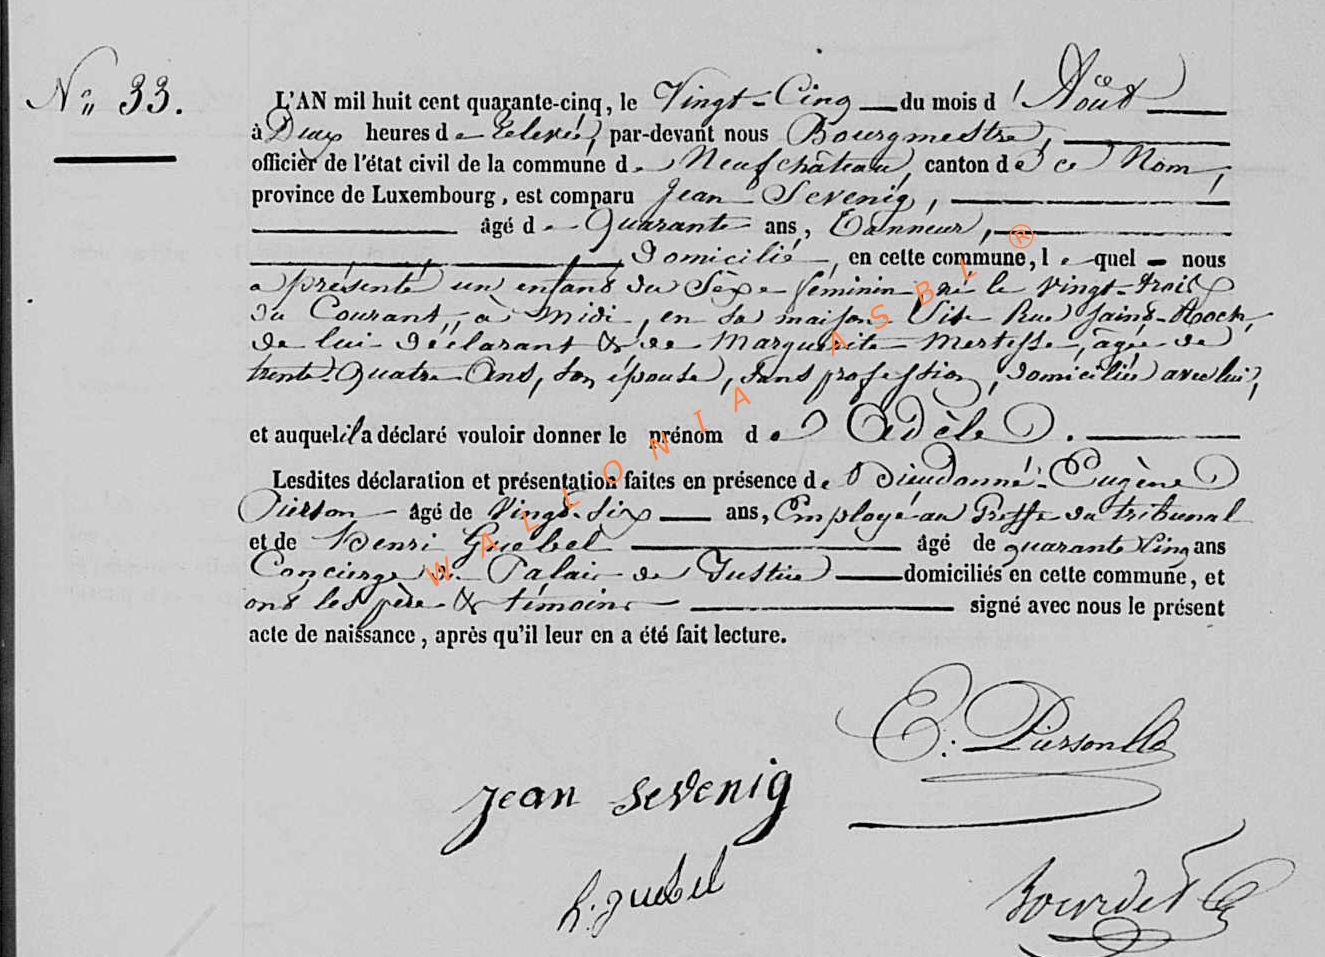 N° 33.
L'AN mil huit cent quarante-cinq, le Vingt-Cinq du mois d'Août
à Deux heures de Relevée, par-devant nous Bourgmestre,
officier de l'état civil de la commune de Neufchâteau, canton de ce Nom,
province de Luxembourg, est comparu Jean Sevenig,
âgé de Quarante ans, Tanneur,
Domicilié, en cette commune, lequel nous
a présenté un enfant du Sèxe féminin né le vingt-trois
du Courant, à Midi, en sa maison Sise Rue Saint-Roch,
de lui déclarant & de Marguerite Mertesse, âgée de
trente-Quatre Ans, son épouse, sans profession, domiciliée avec lui,
et auquel il a déclaré vouloir donner le prénom de Adèle.
Lesdites déclaration et présentation faites en présence de Dieudonné-Eugène
Pierson âgé de Vingt-Six ans, Employé au Greffe du tribunal
et de Henri Guebel âgé de quarante Cinq ans
Concierge du Palais de Justice domiciliés en cette commune, et
ont les père & témoins signé avec nous le présent
acte de naissance, après qu'il leur en a été fait lecture.
E. Pierson
Jean Sevenig
h. guebel
Bourdet
WALLONIA ASBL ®